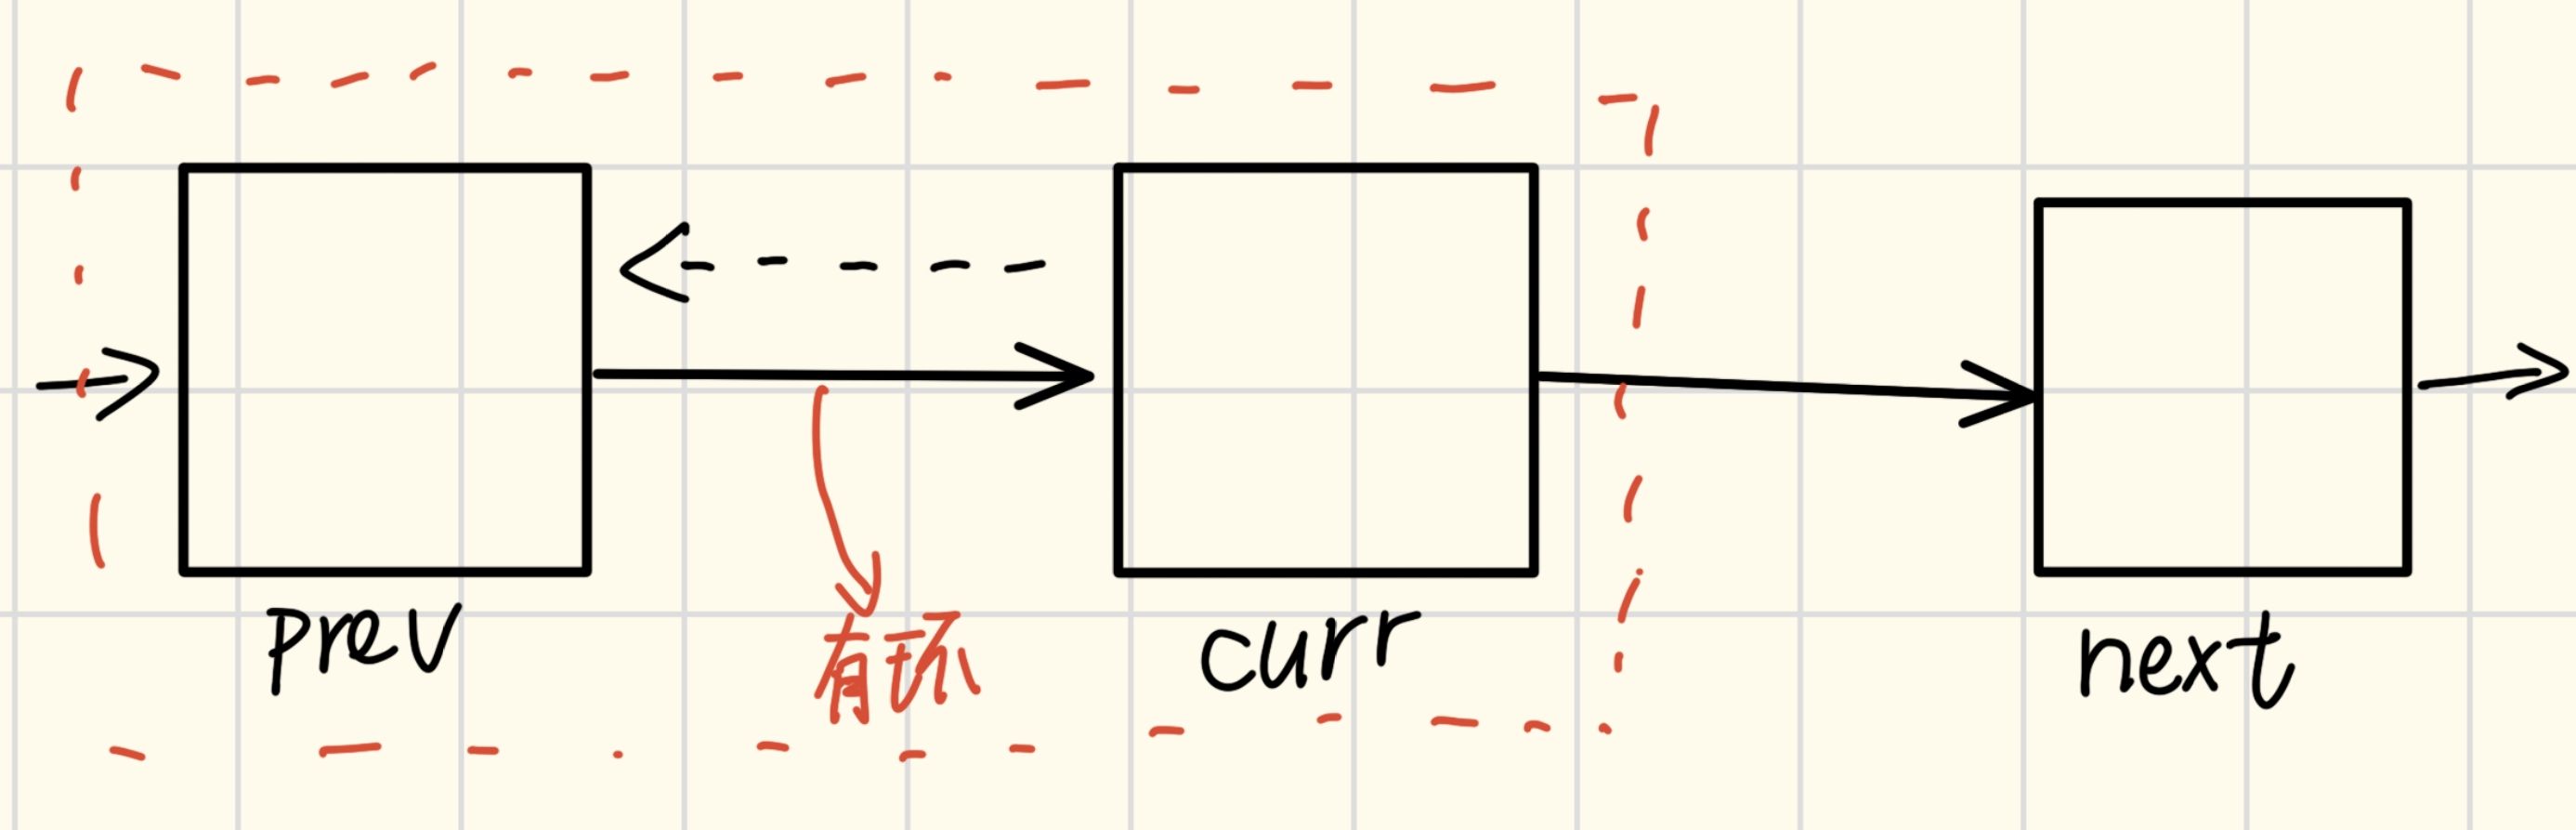 prev
有环
curr
next